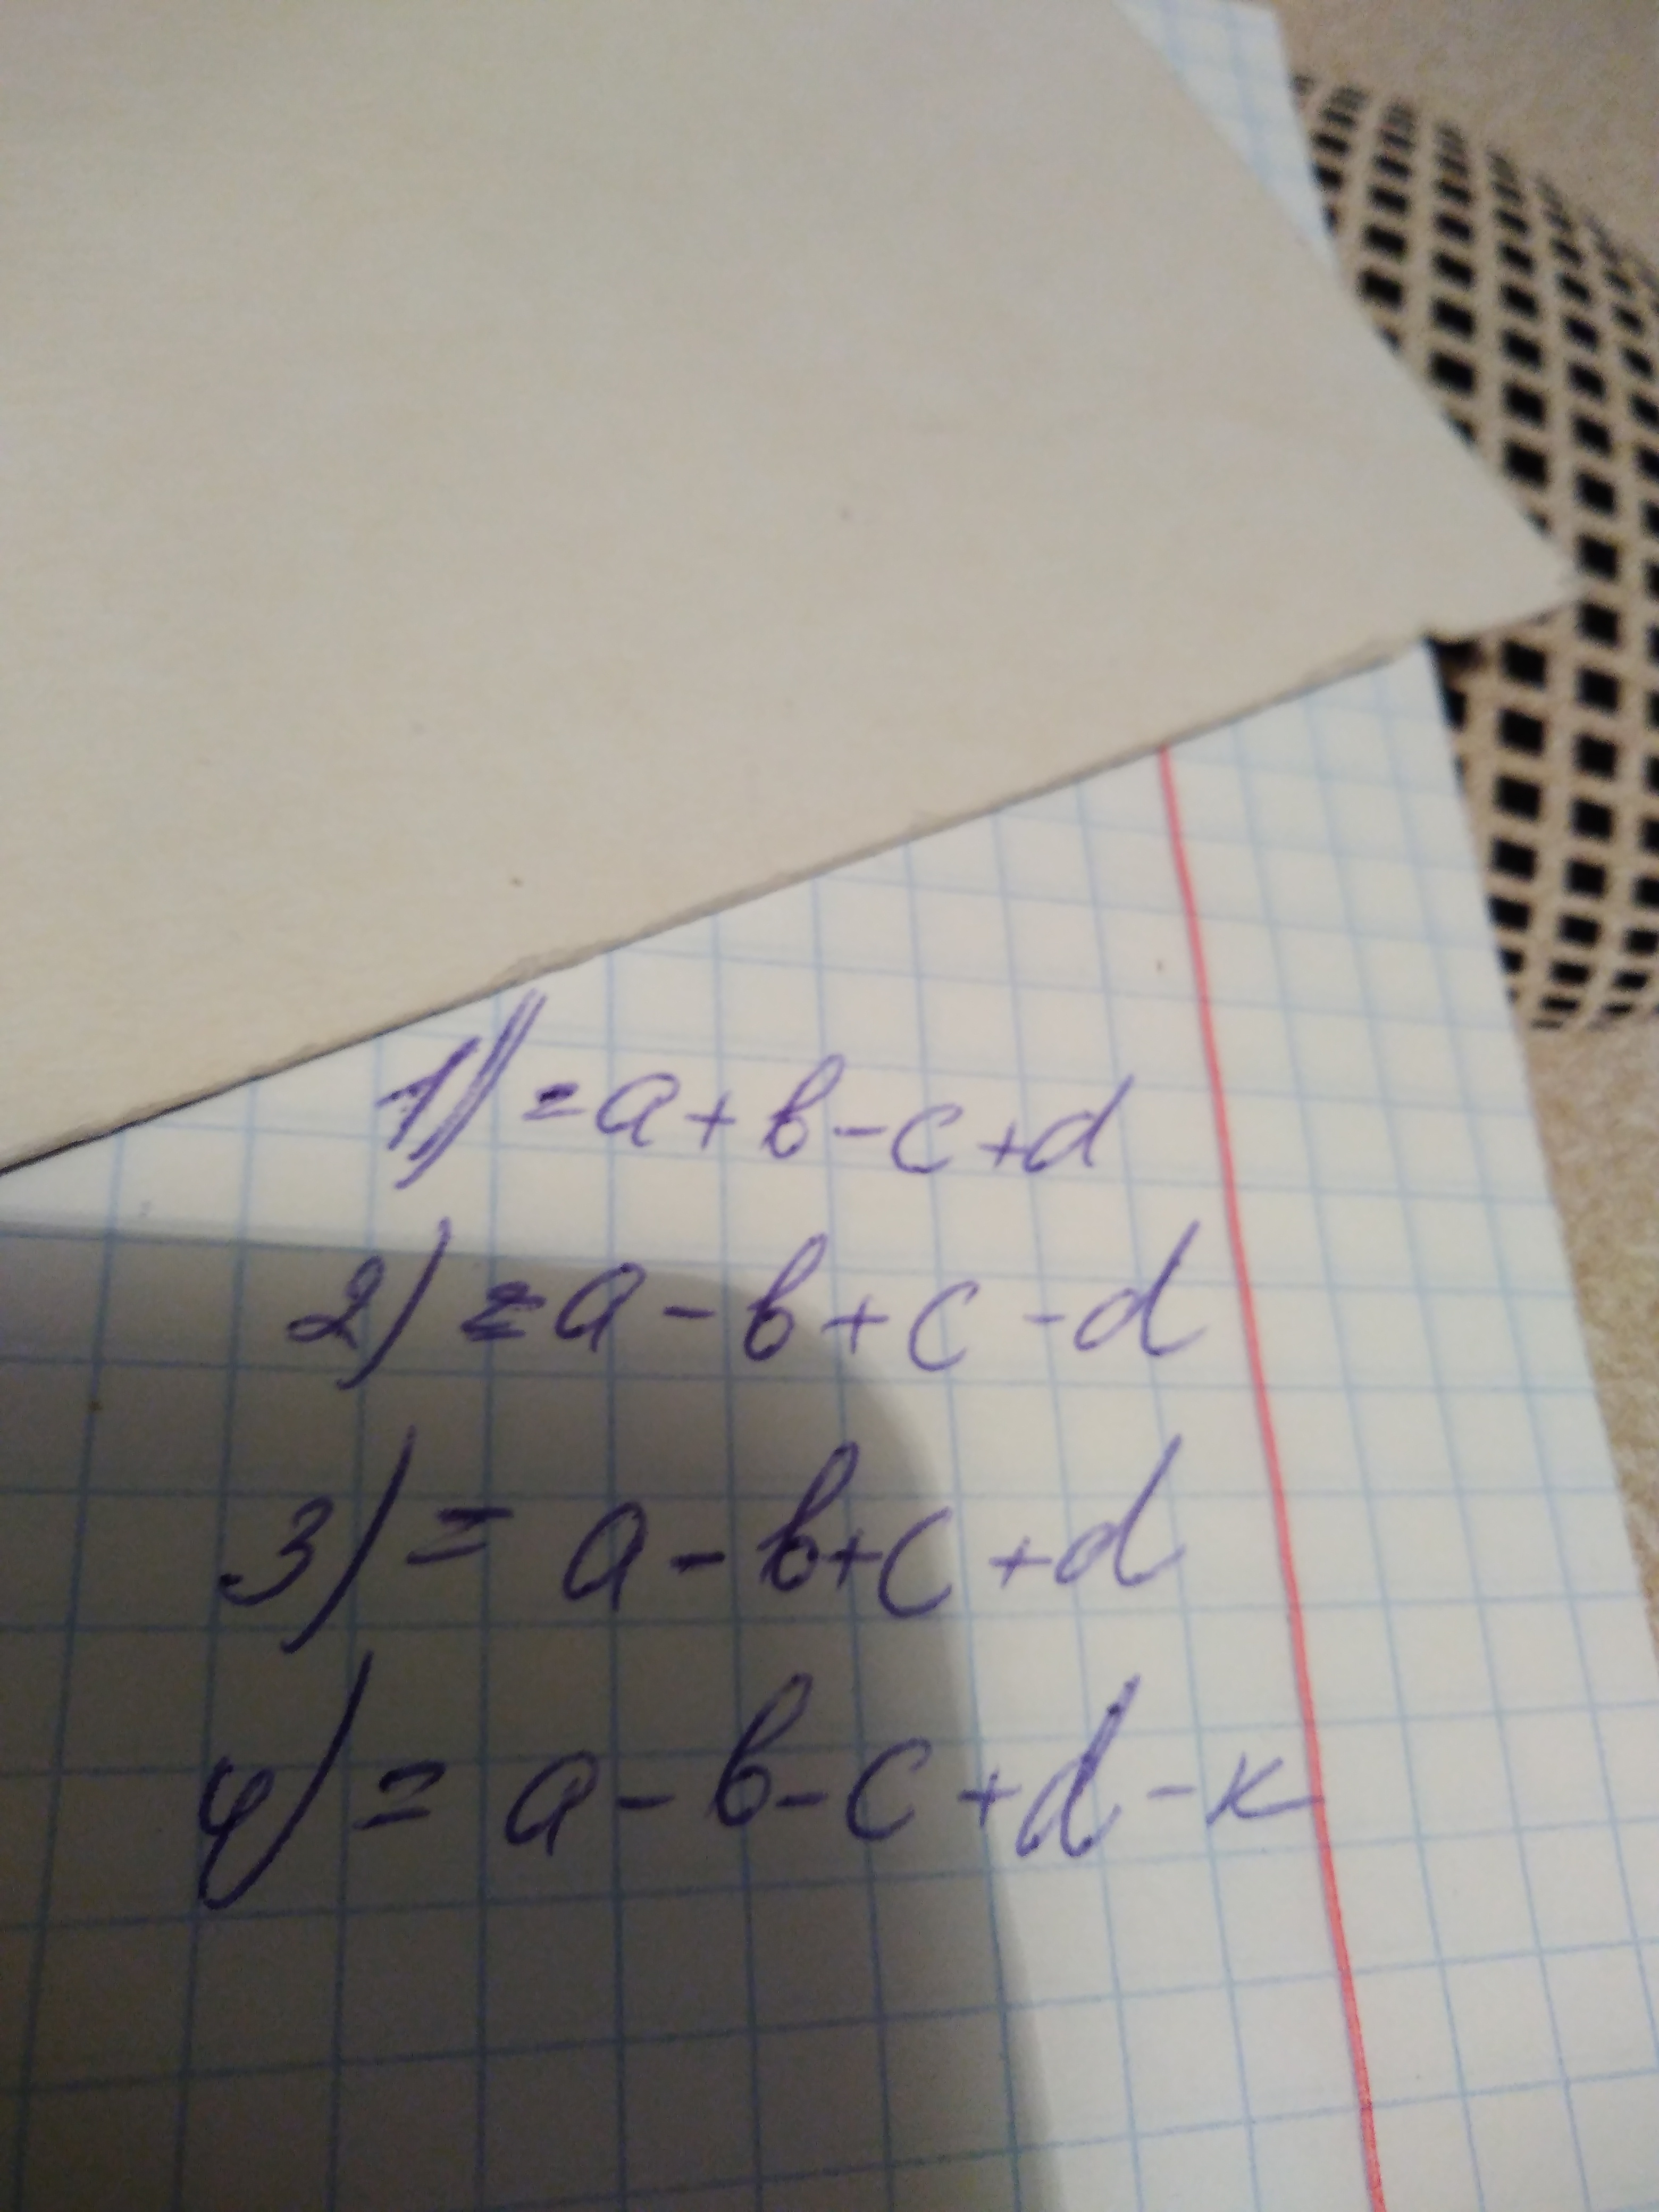 1) = a + b - c + d
2) = a - b + c - d
3) = a - b + c + d
4) = a - b - c + d - k